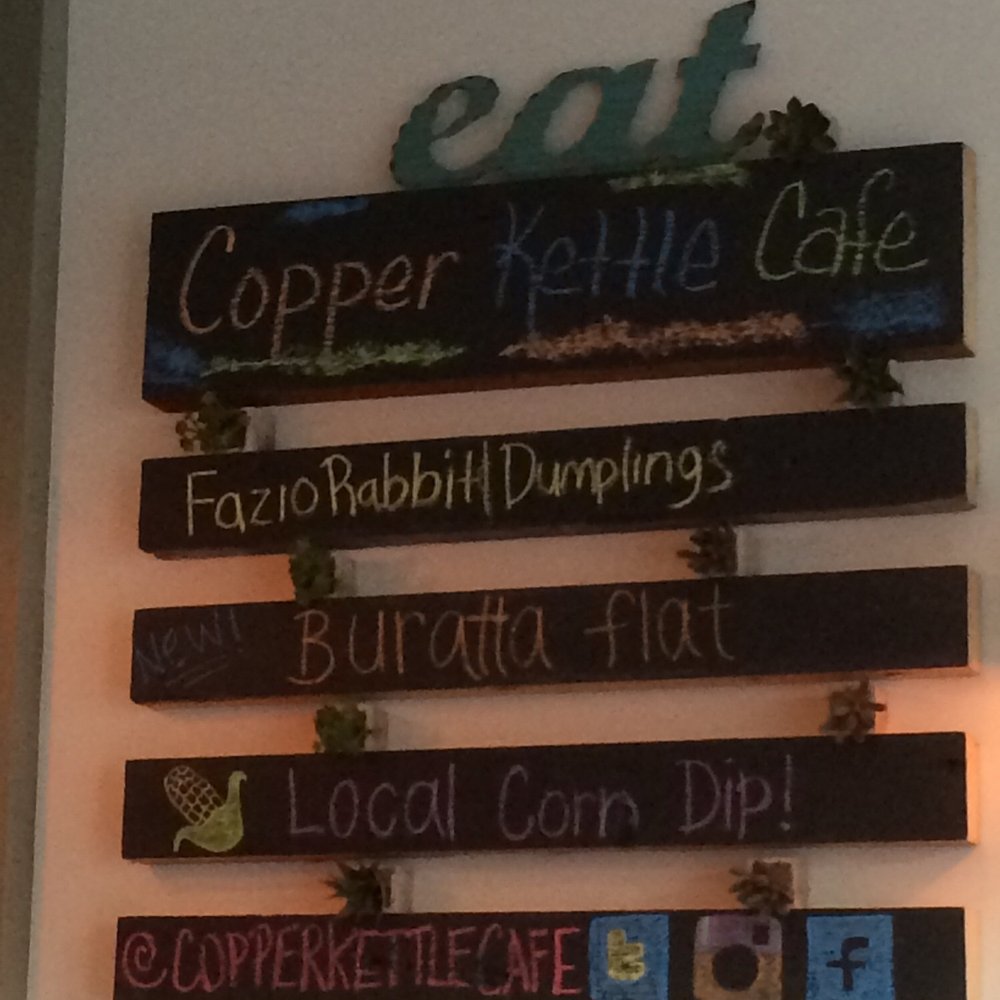 eat
Copper Kettle Cafe
Fazio Rabbit | Dumplings
New! Buratta flat
Local Corn Dip!
@COPPERKETTLECAFE t f